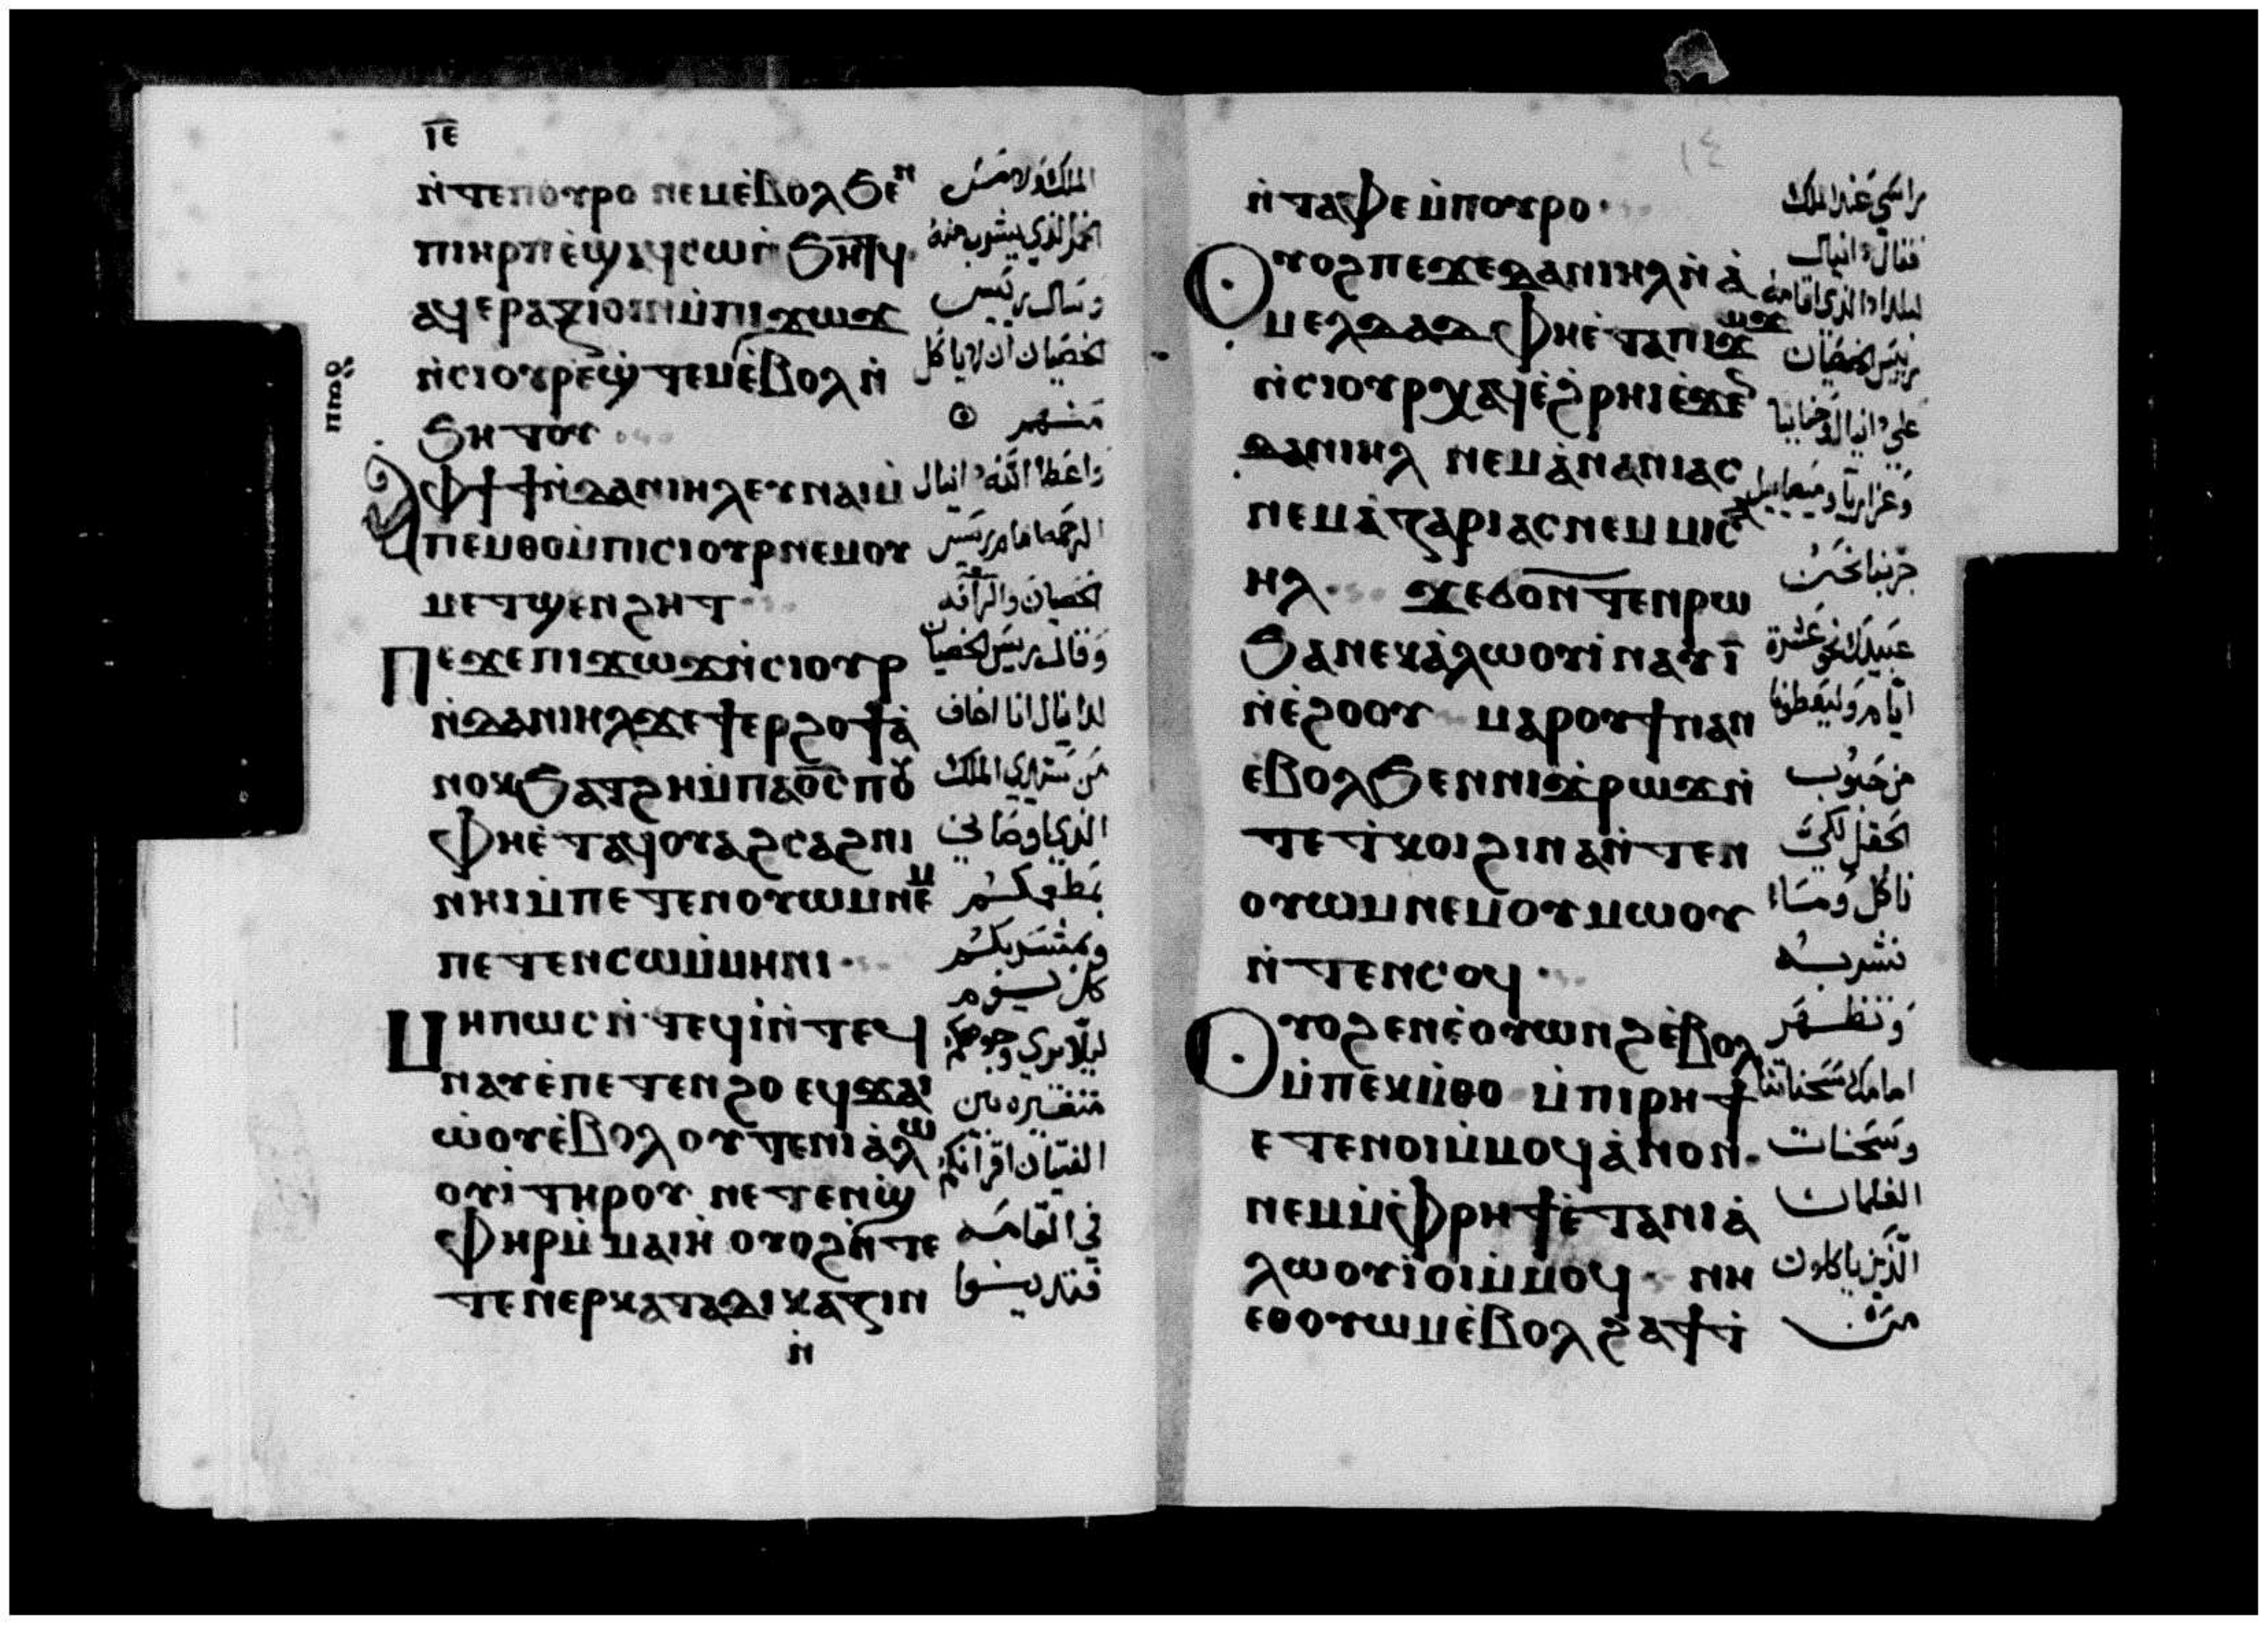 ⲓ̅ⲉ̅
ⲛ̀ⲧⲉⲡⲟⲩⲣⲟ ⲛⲉⲙⲉ̀ⲃⲟⲗϧⲉⲛ
ⲡⲓⲏⲣⲡⲉ̀ϣⲁϥⲥⲱⲛ̀ϧⲏⲧϥ·
ⲁϥⲉⲣⲁⲝⲓⲟⲓⲛⲙ̀ⲡⲓϫⲱϫ
ⲛ̀ⲥⲓⲟⲩⲣⲉ̀ϣⲧⲉⲙⲉ̀ⲃⲟⲗⲛ̀
ϧⲏⲧⲟⲩ
ⲁ̀ⲫϯϯⲛ̀ⲇⲁⲛⲓⲏⲗⲉⲩⲛⲁⲓⲙ̀
ⲡⲉⲙⲑⲟⲙ̀ⲡⲓⲥⲓⲟⲩⲣⲛⲉⲙⲟⲩ
ⲙⲉⲧϣⲉⲛϩⲏⲧ
ⲡⲉϫⲉⲡⲓϫⲱϫⲛ̀ⲥⲓⲟⲩⲣ
ⲛ̀ⲇⲁⲛⲓⲏⲗϫⲉϯⲉⲣϩⲟϯⲁ̀
ⲛⲟⲕϧⲁⲧϩⲏⲙ̀ⲡⲁⲟ̅ⲥ̅ⲡⲟⲩ
ⲫⲏⲉ̀ⲧⲁϥⲟⲩⲁϩⲥⲁϩⲛⲓ
ⲛⲏⲓⲙ̀ⲡⲉⲧⲉⲛⲟⲩⲱⲙⲛⲉⲙ
ⲡⲉⲧⲉⲛⲥⲱⲙ̀ⲙⲏⲛⲓ
ⲙⲏⲡⲱⲥⲛ̀ⲧⲉϥⲓ̀ⲛ̀ⲧⲉϥ
ⲛⲁⲩⲉ̀ⲡⲉⲧⲉⲛϩⲟ ⲉϥϫⲁⲓ
ⲱ̀ⲟⲩⲉ̀ⲃⲟⲗⲟⲩⲧⲉⲛⲓⲁ̀ⲗⲱ
ⲟⲩⲓ̀ⲧⲏⲣⲟⲩ ⲛⲉⲧⲉⲛϣ̀
ⲫⲏⲣⲙ̀ⲙⲁⲓⲏ̀ ⲟⲩⲟϩⲛ̀ⲧⲉ
ⲧⲉⲛⲉⲣⲕⲁⲧⲁⲇⲓⲕⲁⲍⲓⲛ
ⲛ̀
الملك ولا من
الخمر الذي يشرب منه
وسال ريس
الخصيان ان لا ياكل
منهم
واعطا الله دانيال
الرحمه امام ريس
الخصيان والرافه
وقال ريس الخصيان
لدانيال انا اخاف
من سيدي الملك
الذي اوصاني
بمطعمكم
وبمشربكم
كل يوم
ليلا يري وجوهكم
متغيره بين
الفتيان اقرانكم
في القامه
فتدينوا
١٤
ⲛ̀ⲧⲁⲫⲉⲙ̀ⲡⲟⲩⲣⲟ·
ⲟⲩⲟϩⲡⲉϫⲉⲇⲁⲛⲓⲏⲗⲛ̀ⲁ̀
ⲙⲉⲗⲇⲁⲇ ⲫⲏⲉ̀ⲧⲁⲡⲓϫⲱϫ
ⲛ̀ⲥⲓⲟⲩⲣⲭⲁϥⲉ̀ϩⲣⲏⲓⲉ̀ϫⲉⲛ
ⲇⲁⲛⲓⲏⲗ ⲛⲉⲙⲁ̀ⲛⲁⲛⲓⲁⲥ
ⲛⲉⲙⲁ̀ⲍⲁⲣⲓⲁⲥⲛⲉⲙⲙⲓⲥⲁ
ⲏⲗ ϫⲉϭⲟⲛⲧⲉⲛⲣⲱ
ϧⲁⲛⲉⲕⲁ̀ⲗⲱⲟⲩⲓ̀ⲛⲁⲩⲓ̅
ⲛ̀ⲉ̀ϩⲟⲟⲩ ⲙⲁⲣⲟⲩϯⲛⲁⲛ
ⲉ̀ⲃⲟⲗϧⲉⲛⲛⲓϫ̀ⲣⲱϫⲛ̀
ⲧⲉⲧ̀ⲕⲟⲓϩⲓⲛⲁⲛ̀ⲧⲉⲛ
ⲟⲩⲱⲙⲛⲉⲙⲟⲩⲙⲱⲟⲩ
ⲛ̀ⲧⲉⲛⲥⲟϥ·
ⲟⲩⲟϩⲉⲛⲉ̀ⲟⲩⲱⲛϩⲉ̀ⲃⲟⲗ
ⲙ̀ⲡⲉⲕⲙ̀ⲑⲟ ⲙ̀ⲡⲓⲣⲏϯ
ⲉⲧⲉⲛⲟⲓⲙ̀ⲙⲟϥⲁ̀ⲛⲟⲛ·
ⲛⲉⲙⲙ̀ⲫⲣⲏϯⲉ̀ⲧⲁⲛⲓⲁ̀
ⲗⲱⲟⲩⲓ̀ⲟⲓⲙ̀ⲙⲟϥ ⲛⲏ
ⲉⲑⲟⲩⲱⲙⲉ̀ⲃⲟⲗϩⲁϯⲧ̀
راسي عند الملك
فقال دانيال
ريس الخصيان
علي دانيال وحنانيا
وعزاريا وميصاييل
جربنا نحن
عبيدك نحو عشرة
ايام وليعطونا
من حبوب
الحقل لكي
ناكل وماء
نشربه
وتظهر
امامك سحناتنا
وسحنات
الغلمان
الذين ياكلون
من